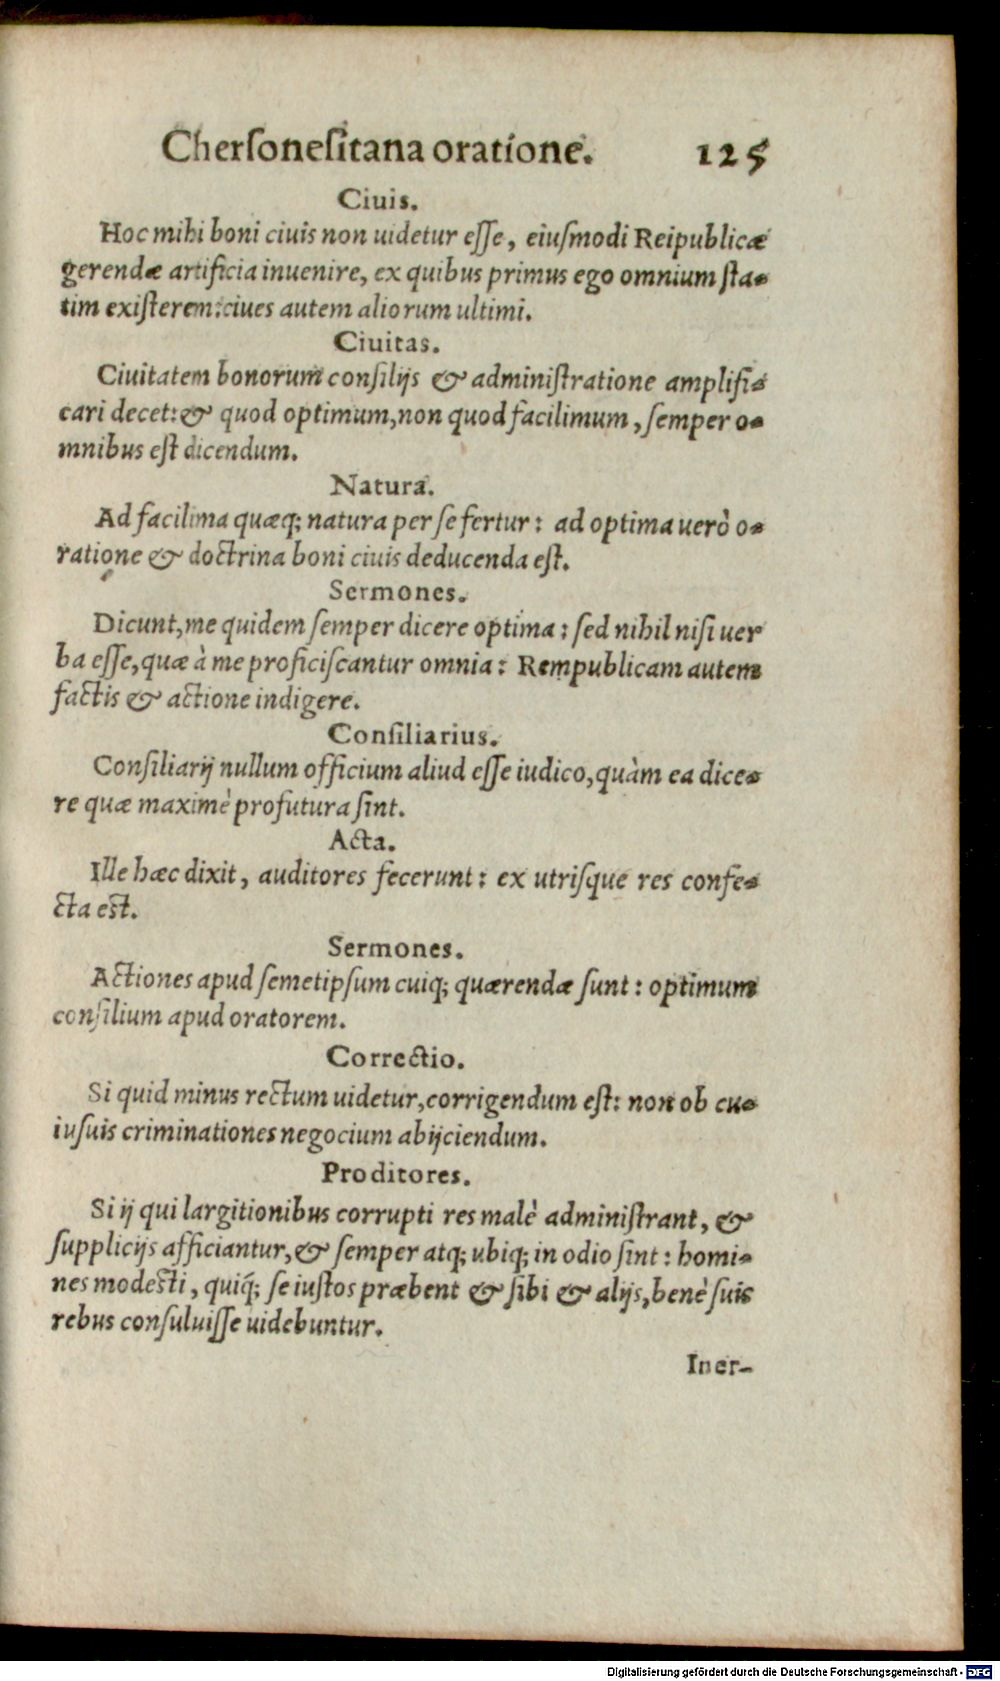 Cherſoneſitana oratione. 125
Ciuis.
Hoc mihi boni ciuis non uidetur eſſe, eiuſmodi Reipublicæ
gerendæ artificia inuenire, ex quibus primus ego omnium ſta-
tim exiſterem: ciues autem aliorum ultimi.
Ciuitas.
Ciuitatem bonorum conſilijs & adminiſtratione amplifi-
cari decet: & quod optimum, non quod facilimum, ſemper o-
mnibus eſt dicendum.
Natura.
Ad facilima quæq; natura per ſe fertur: ad optima uerò o-
ratione & doctrina boni ciuis deducenda eſt.
Sermones.
Dicunt, me quidem ſemper dicere optima: ſed nihil niſi uer
ba eſſe, quæ à me proficiſcantur omnia: Rempublicam autem
factis & actione indigere.
Conſiliarius.
Conſiliarij nullum officium aliud eſſe iudico, quàm ea dice-
re quæ maximè profutura ſint.
Acta.
Ille hæc dixit, auditores fecerunt: ex utriſque res confe-
cta eſt.
Sermones.
Actiones apud ſemetipſum cuiq; quærendæ ſunt: optimum
conſilium apud oratorem.
Correctio.
Si quid minus rectum uidetur, corrigendum eſt: non ob cu-
iuſuis criminationes negocium abijciendum.
Proditores.
Si ij qui largitionibus corrupti res malè adminiſtrant, &
ſupplicijs afficiantur, & ſemper atq; ubiq; in odio ſint: homi-
nes modeſti, quiq́; ſe iuſtos præbent & ſibi & alijs, benè ſuis
rebus conſuluiſſe uidebuntur.
Iner-
Digitalisierung gefördert durch die Deutsche Forschungsgemeinschaft - DFG